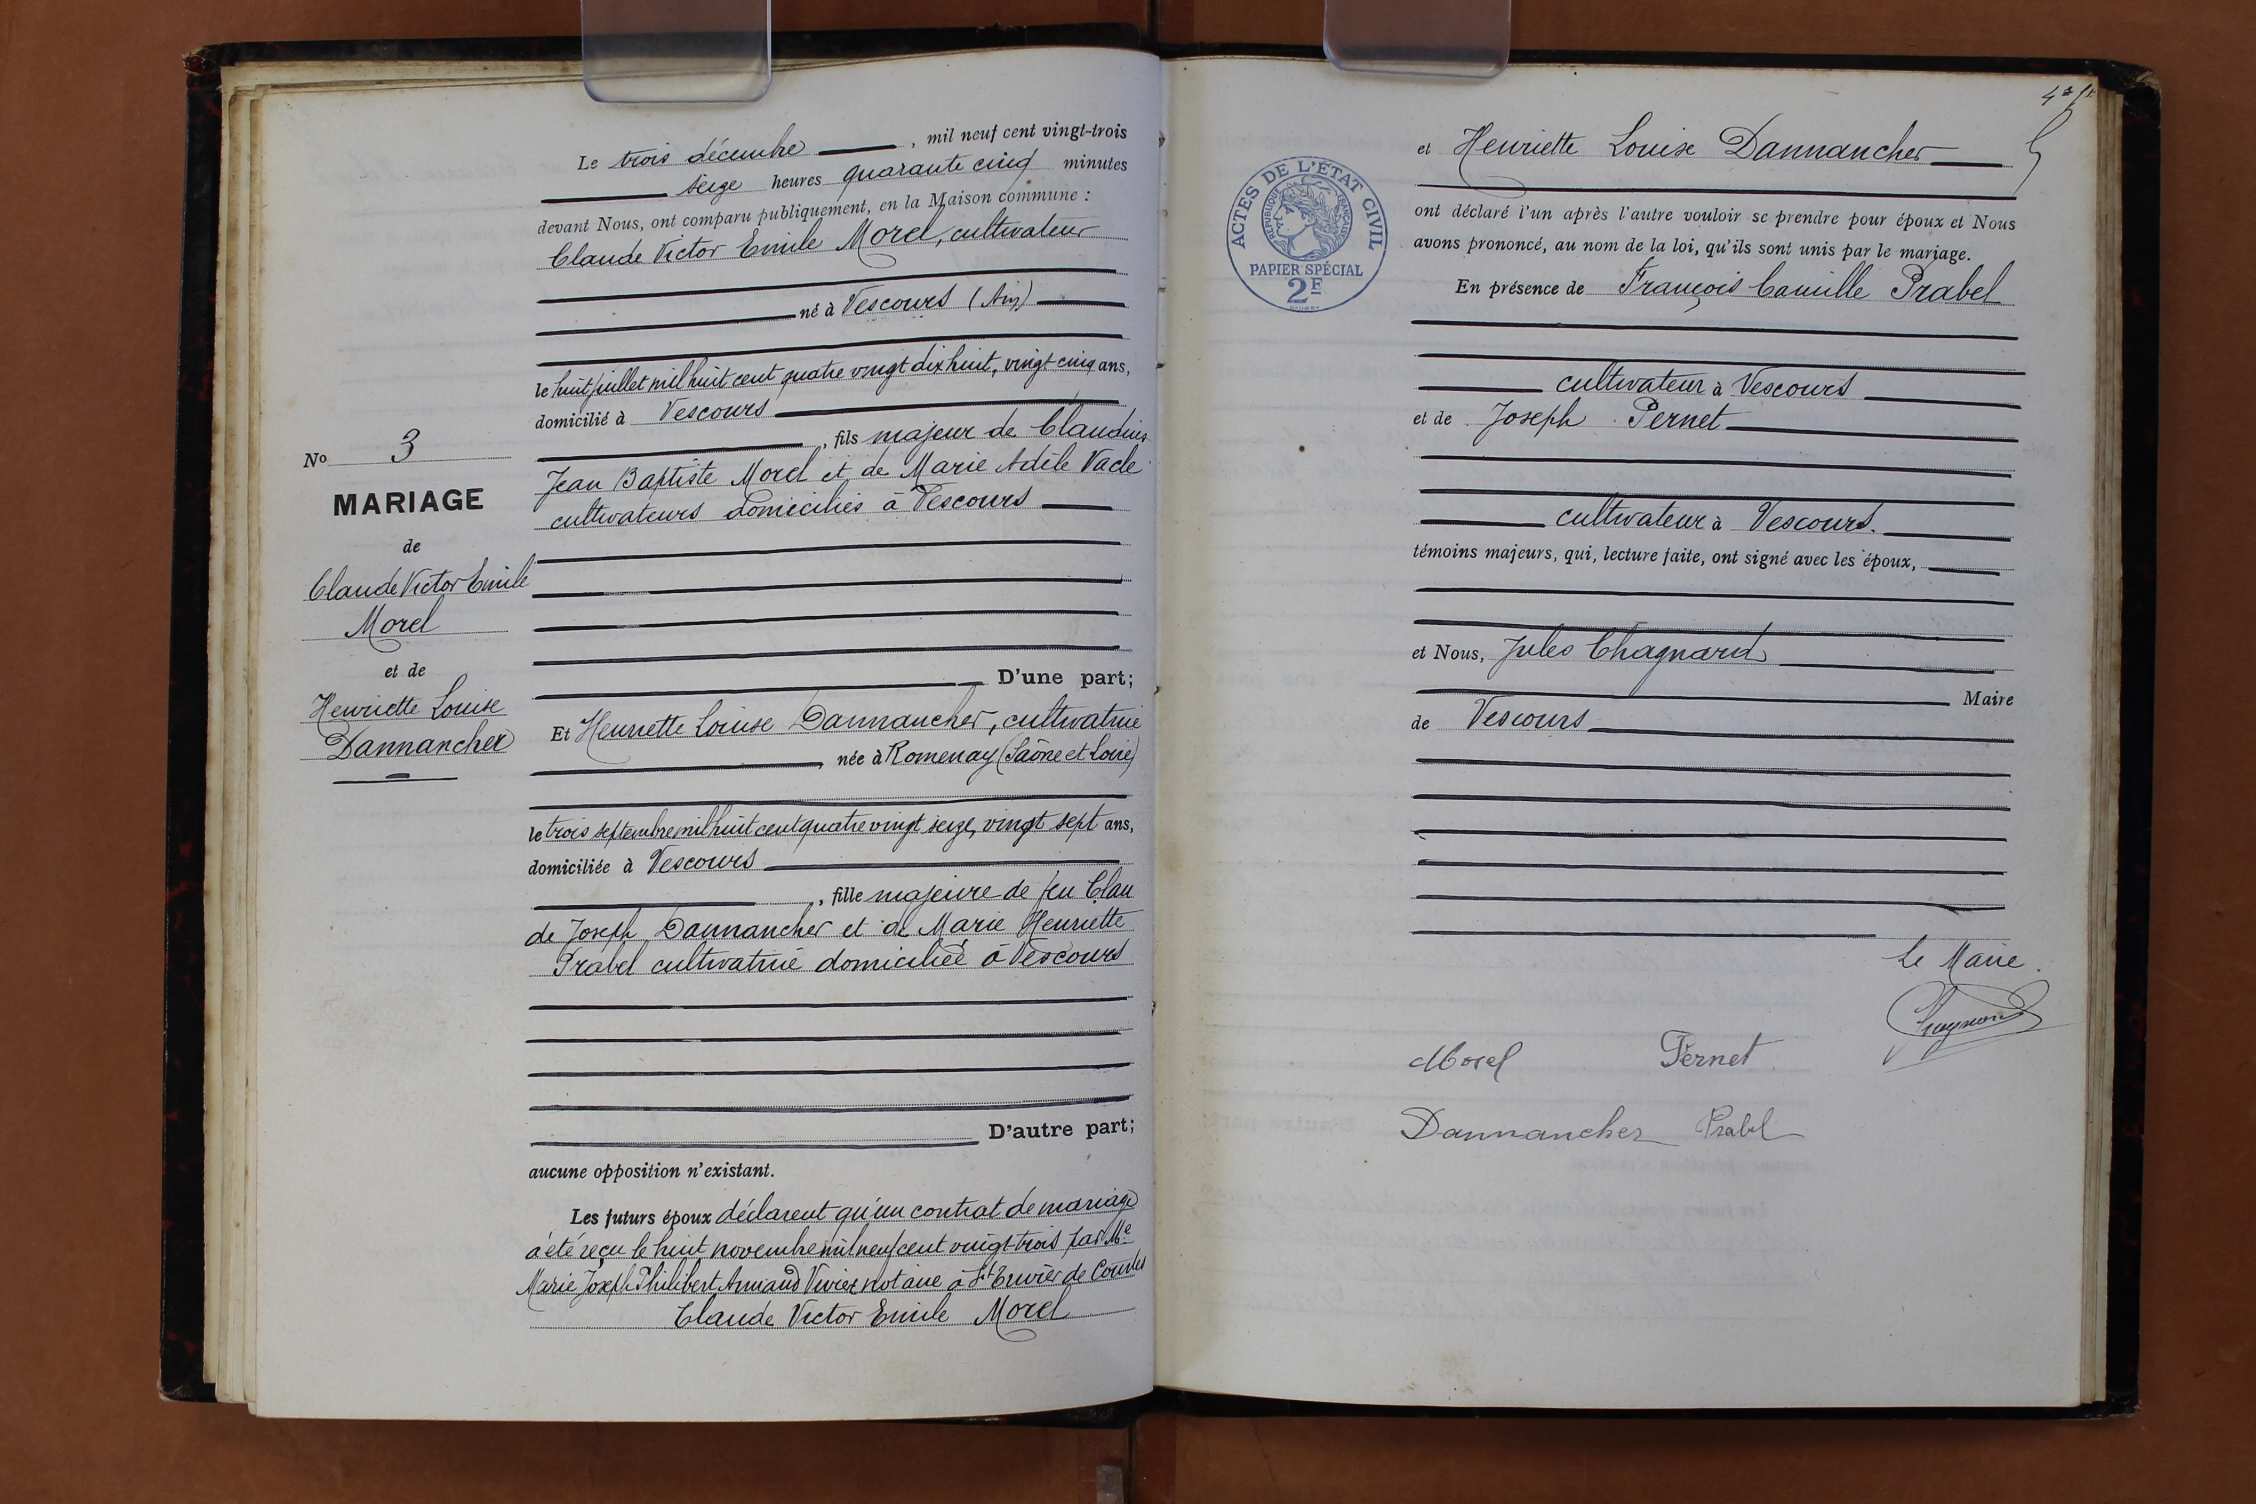 Le trois décembre, mil neuf cent vingt-trois
seize heures quarante cinq minutes
devant Nous, ont comparu publiquement, en la Maison commune :
Claude Victor Emile Morel, cultivateur
né à Vescours (Ain)
le huit juillet mil huit cent quatre vingt dix huit, vingt cinq ans,
domicilié à Vescours
, fils majeur de Claudius
Jean Baptiste Morel et de Marie Adèle Vacle
cultivateurs domiciliés à Vescours
D'une part;
Et Henriette Louise Dannancher, cultivatrice
, née à Romenay (Saône et Loire)
le trois septembre mil huit cent quatre vingt seize, vingt sept ans,
domiciliée à Vescours
, fille majeure de feu Clau
de Joseph Dannancher et de Marie Henriette
Prabel cultivatrice domiciliée à Vescours
D'autre part;
aucune opposition n'existant.
Les futurs époux déclarent qu'un contrat de mariage
a été reçu le huit novembre mil neuf cent vingt-trois par Me
Marie Joseph Philibert Armand Vivier notaire à St Trivier de Courtes
Claude Victor Emile Morel
No 3
MARIAGE
de
Claude Victor Emile
Morel
et de
Henriette Louise
Dannancher
et Henriette Louise Dannancher
ont déclaré l'un après l'autre vouloir se prendre pour époux et Nous
avons prononcé, au nom de la loi, qu'ils sont unis par le mariage.
En présence de François Camille Prabel
cultivateur à Vescours
et de Joseph Pernet
cultivateur à Vescours.
témoins majeurs, qui, lecture faite, ont signé avec les époux,
et Nous, Jules Chagnard
Maire
de Vescours
Le Maire.
Chagnard
Morel Pernet
Dannancher Prabel
ACTES DE L'ÉTAT CIVIL
RÉPUBLIQUE FRANÇAISE
PAPIER SPÉCIAL
2F